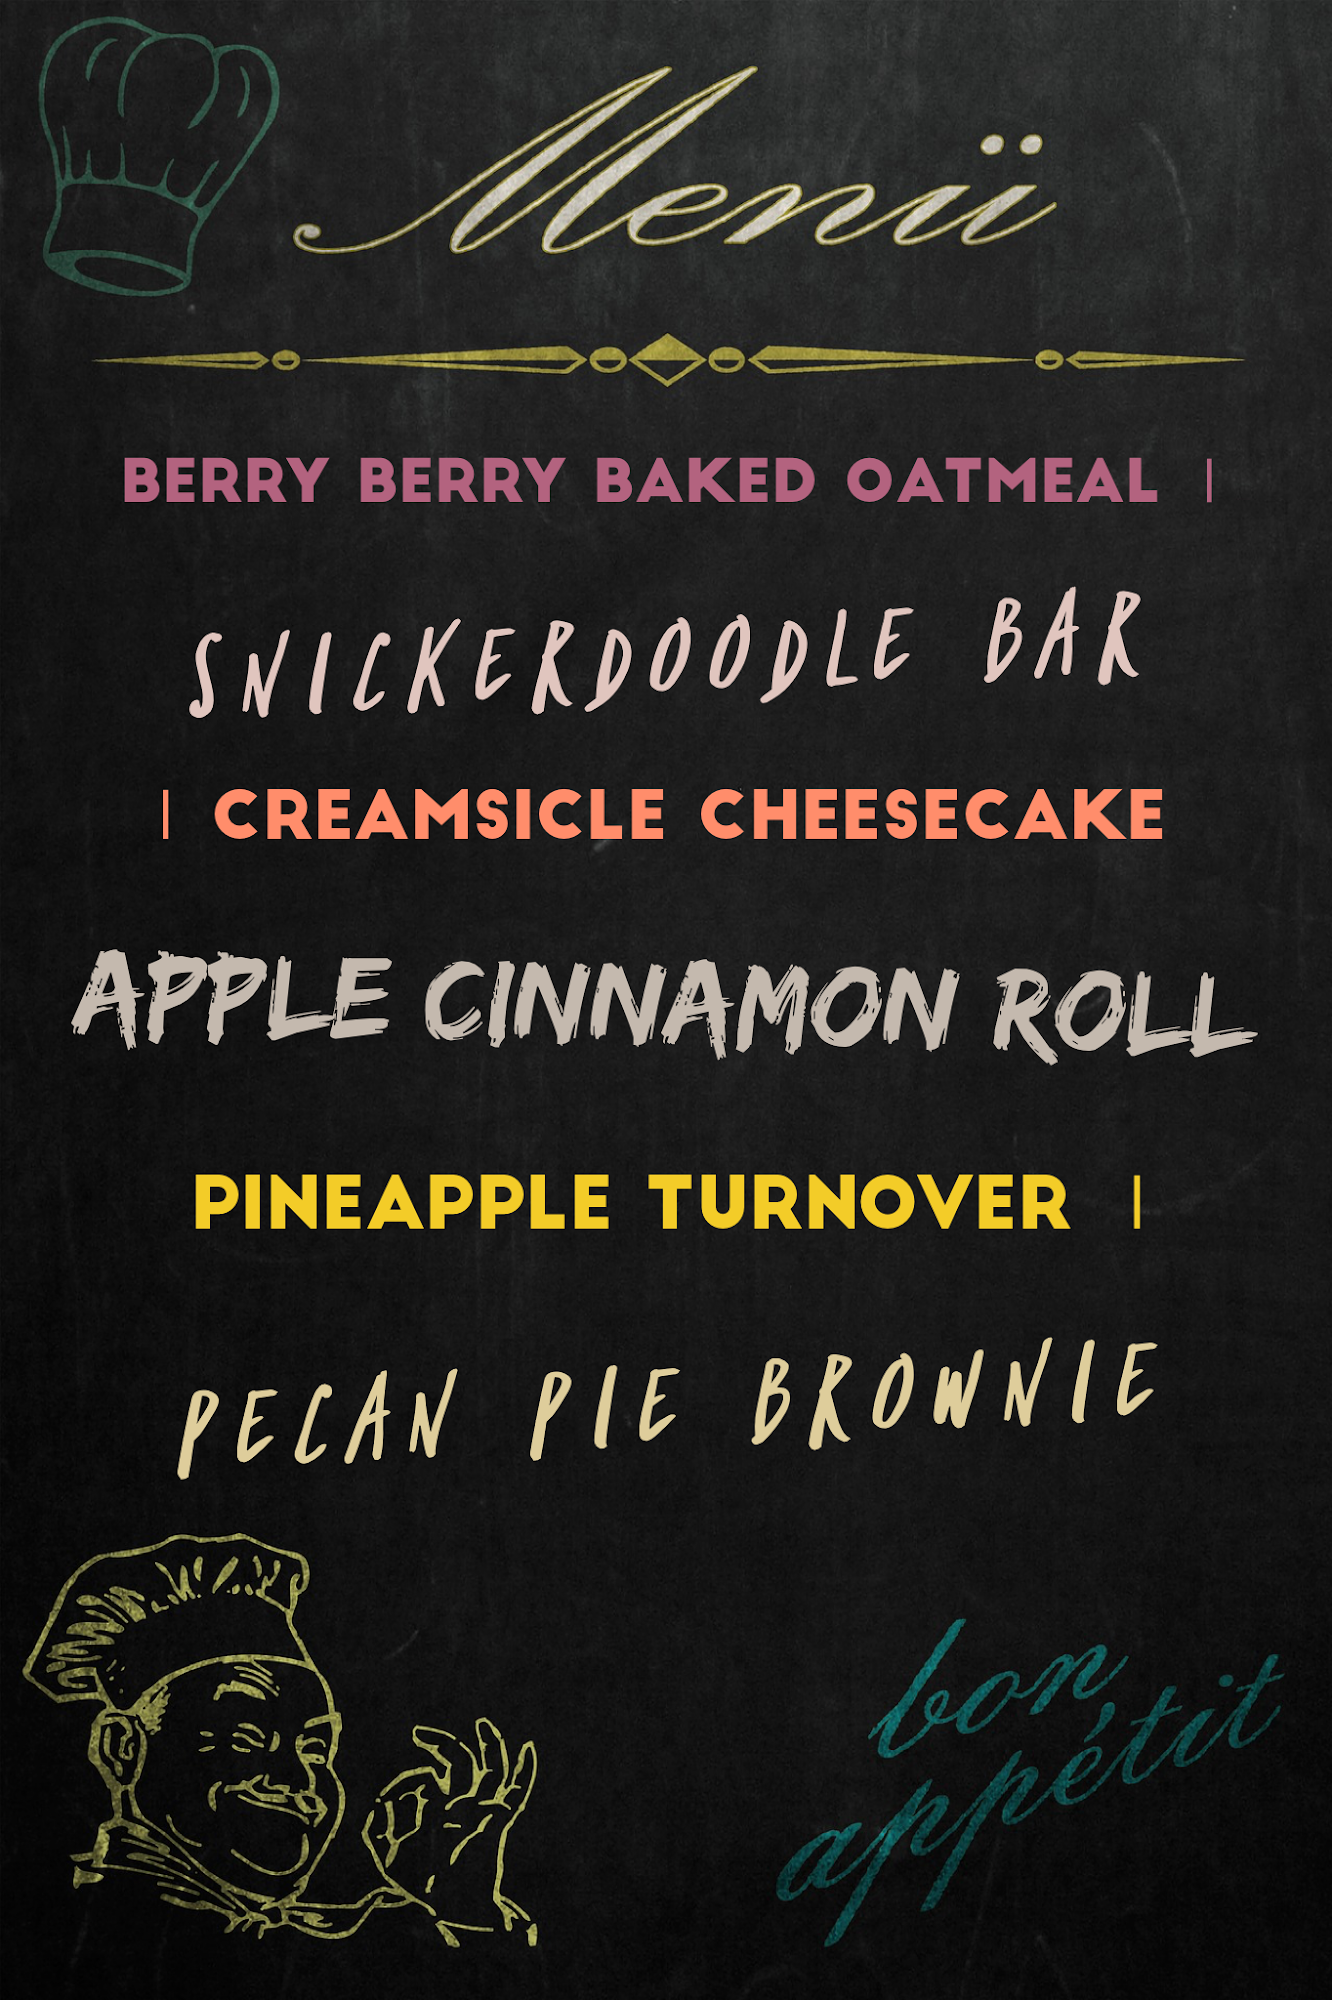 Menü
BERRY BERRY BAKED OATMEAL |
SNICKERDOODLE BAR
| CREAMSICLE CHEESECAKE
APPLE CINNAMON ROLL
PINEAPPLE TURNOVER |
PECAN PIE BROWNIE
bon
appétit